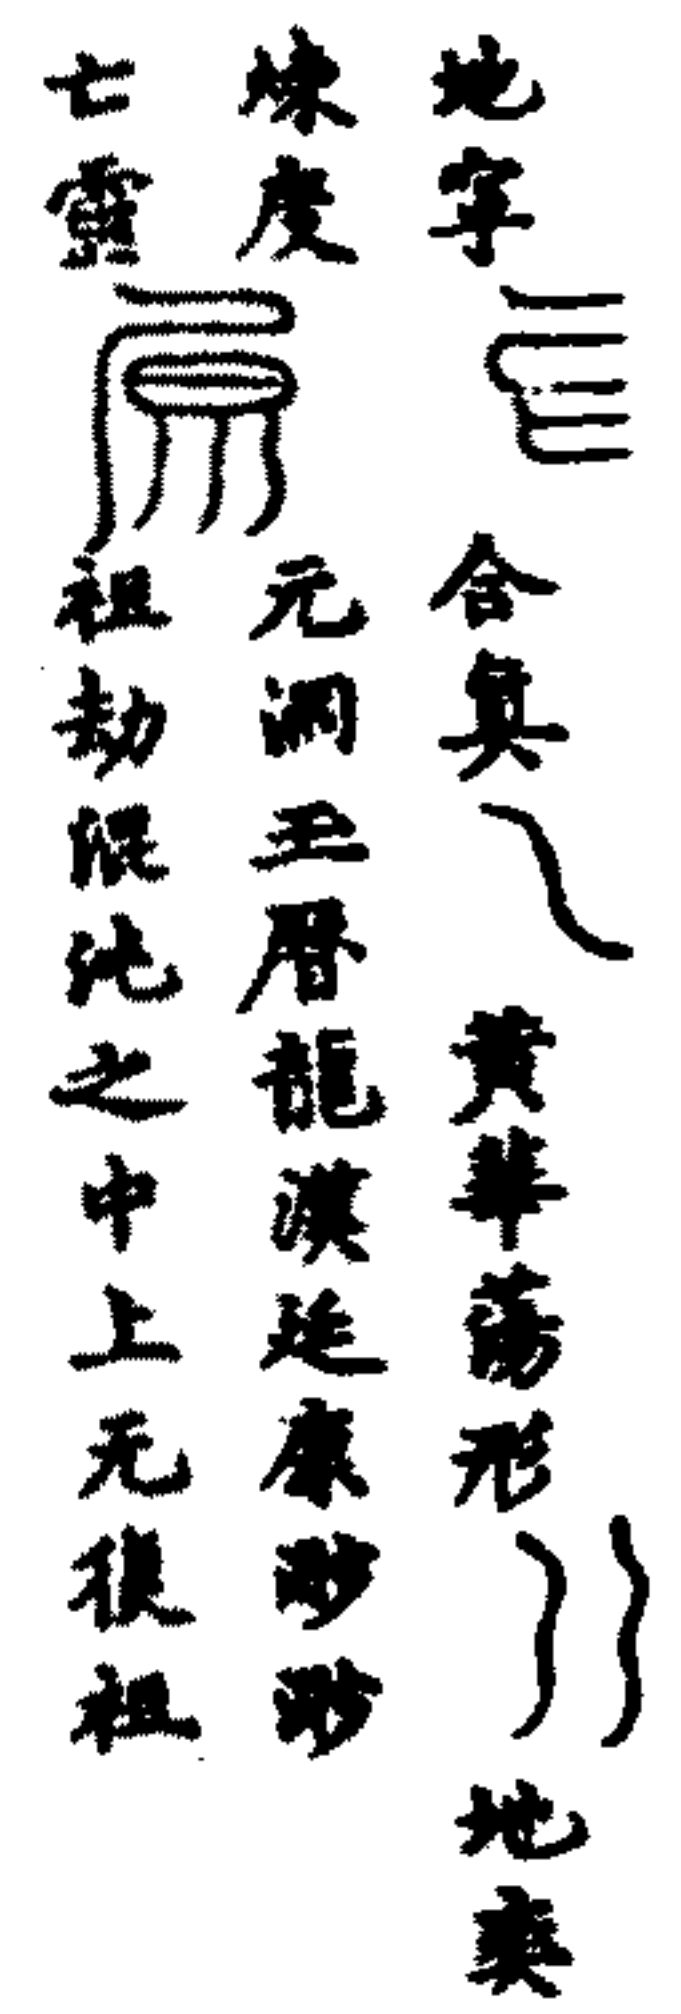 地字
合真
黄華蕩形
地爽
煉度
元洞玉暦龍漢延康眇眇
亡靈
祖劫混沌之中上无復祖